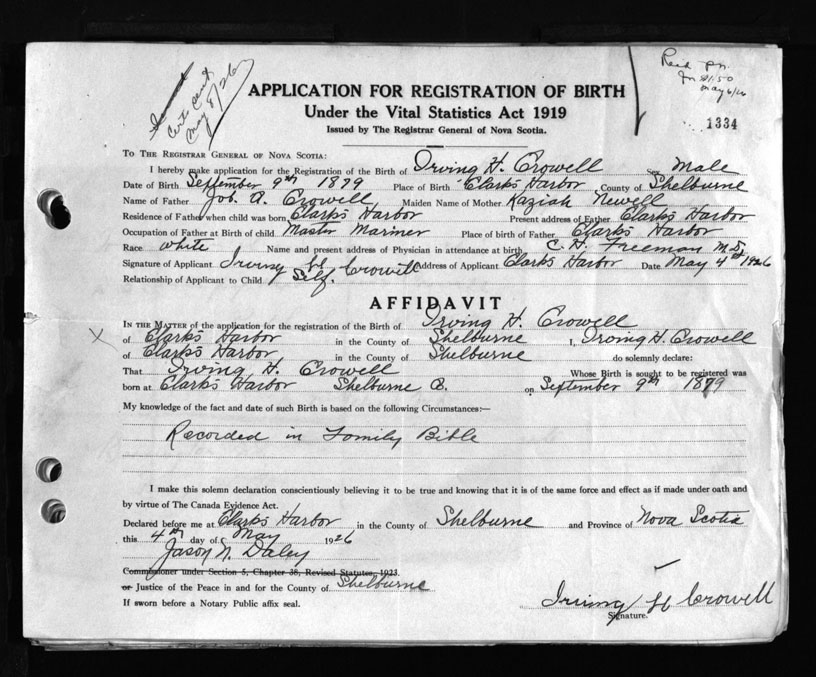 Cert sent
May 8/26
Recd pn.
May 6/26
APPLICATION FOR REGISTRATION OF BIRTH
Under the Vital Statistics Act 1919
Issued by The Registrar General of Nova Scotia.
1334
To The Registrar General of Nova Scotia:
I hereby make application for the Registration of the Birth of Irving H. Crowell Sex Male
Date of Birth September 9th 1879 Place of Birth Clark's Harbor County of Shelburne
Name of Father Job. A. Crowell Maiden Name of Mother Kaziah Newell
Residence of Father when child was born Clark's Harbor Present address of Father Clark's Harbor
Occupation of Father at Birth of child Master Mariner Place of birth of Father Clark's Harbor
Race white Name and present address of Physician in attendance at birth C. H. Freeman M.D.
Signature of Applicant Irving H Crowell Address of Applicant Clark's Harbor Date May 4th 1926
Relationship of Applicant to Child Self.
AFFIDAVIT
In the Matter of the application for the registration of the Birth of Irving H. Crowell
X of Clark's Harbor in the County of Shelburne I, Irving H. Crowell
of Clark's Harbor in the County of Shelburne do solemnly declare:
That Irving H. Crowell Whose Birth is sought to be registered was
born at Clark's Harbor Shelburne C. on September 9th 1879
My knowledge of the fact and date of such Birth is based on the following Circumstances:—
Recorded in Family Bible
I make this solemn declaration conscientiously believing it to be true and knowing that it is of the same force and effect as if made under oath and
by virtue of The Canada Evidence Act.
Declared before me at Clark's Harbor in the County of Shelburne and Province of Nova Scotia
this 4th day of May 1926
Jason N. Daley
Commissioner under Section 5, Chapter 38, Revised Statutes, 1923.
or Justice of the Peace in and for the County of Shelburne
If sworn before a Notary Public affix seal.
Irving H Crowell
Signature.